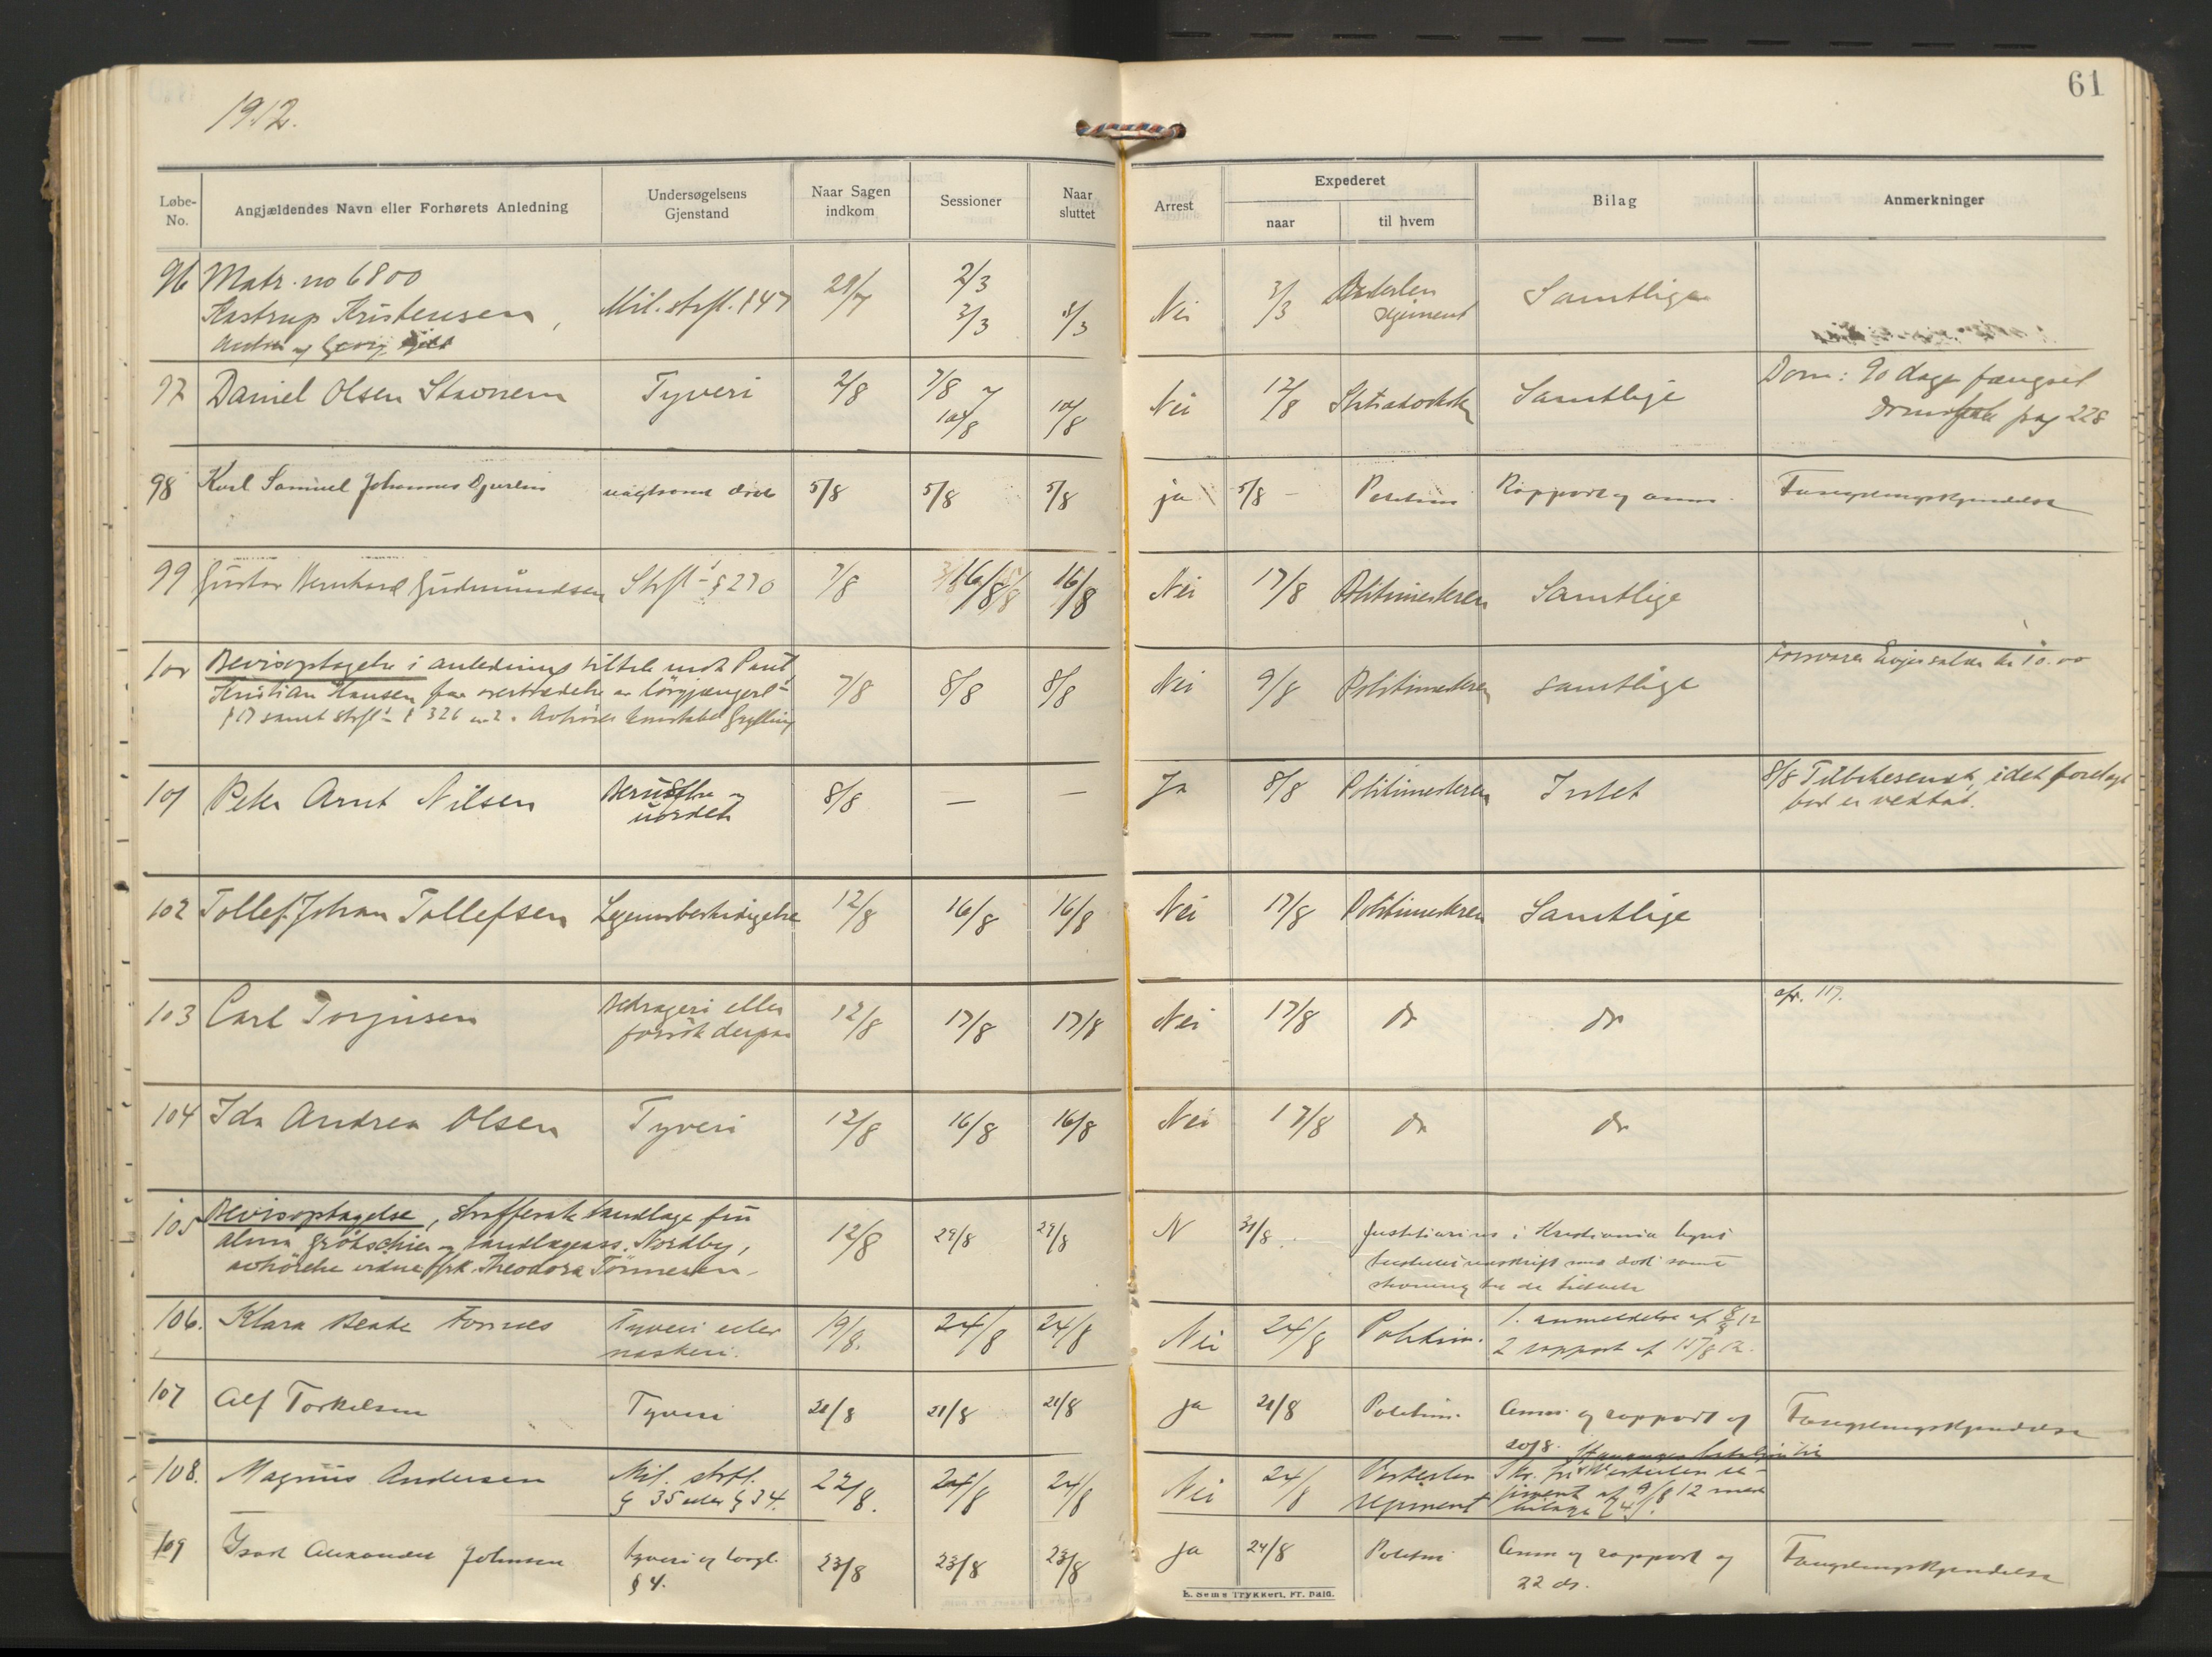 61
1912.
Løbe-No. Angjældendes Navn eller Forhørets Anledning Undersøgelsens Gjenstand Naar Sagen indkom Sessioner Naar sluttet Arrest Expederet naar til hvem Bilag Anmerkninger
96 Matr. no 6800 2/3
Kastrup Kristensen, Mil. strfl. § 47 29/7 3/3 3/3 Nei 3/3 Vesterlen regiment Samtlige
97 Daniel Olsen Stavnem Tyveri 2/8 7/8 10/8 10/8 Nei 12/8 Samtlige Dom: 90 dage fængsel
pag 228
98 Karl Samuel Johannes uagtsomt drab 5/8 5/8 5/8 ja 5/8 - Politim Rapport og anm. Fængslingskjendelse
99 Gustav Bernhard Gudmundsen Strfl § 270 7/8 16/8 16/8 Nei 17/8 Politimesteren Samtlige
100 Bevisoptagelse i anlednings tiltale mot Paul
Kristian Hansen for overtrædelse av løsgjængerl- 7/8 8/8 8/8 Nei 9/8 Politimesteren samtlige kr 10.00
§ 17 samt strfl § 326 n. 2. Avhøres konstabel Grytting
101 Peter Arnt Nilsen Beruselse og uorden 8/8 — — Ja 8/8 Politimesteren Intet 8/8 Tilbakesendt, idet forelagt
bot er vedtat.
102 Tollef Johan Tollefsen Legemsbeskadigelse 12/8 16/8 16/8 Nei 17/8 Politimesteren Samtlige
103 Carl Torjusen Bedrageri eller forsøk derpaa 12/8 17/8 17/8 Nei 17/8 do do cfr. 117.
104 Ida Andrea Olsen Tyveri 12/8 16/8 16/8 Nei 17/8 do do
105 Bevisoptagelse, straffesak tandlæge fru
Alma Grötschier og tandlægeass. Nordby, 12/8 29/8 29/8 N 31/8 Justitiarius i Kristiania byret
avhørelse vidne frk. Theodora Tønnesen.
106. Klara Beate Fornes Tyveri eller naskeri. 19/8. 24/8 24/8 Nei 24/8 Politim. 1. anmeldelse af 8/8 12
2 rapport af 15/8 12.
107 Alf Torkelsen Tyveri 21/8 21/8 21/8 ja 21/8 Politim. Anm. og rapport af 20/8. Fængslingskjendelse
108. Magnus Andersen Mil. strfl. § 35 eller § 34. 22/8. 24/8 24/8 Nei 24/8 Vesterlen regiment Skr. fra Vesterlen re-
giment af 9/8 12 med
bilage
109 Alexander Johnsen tyveri og løsgl. § 4. 23/8 23/8 23/8 ja 24/8 Politim Anm og rapport og 22 ds. Fængslingskjendelse